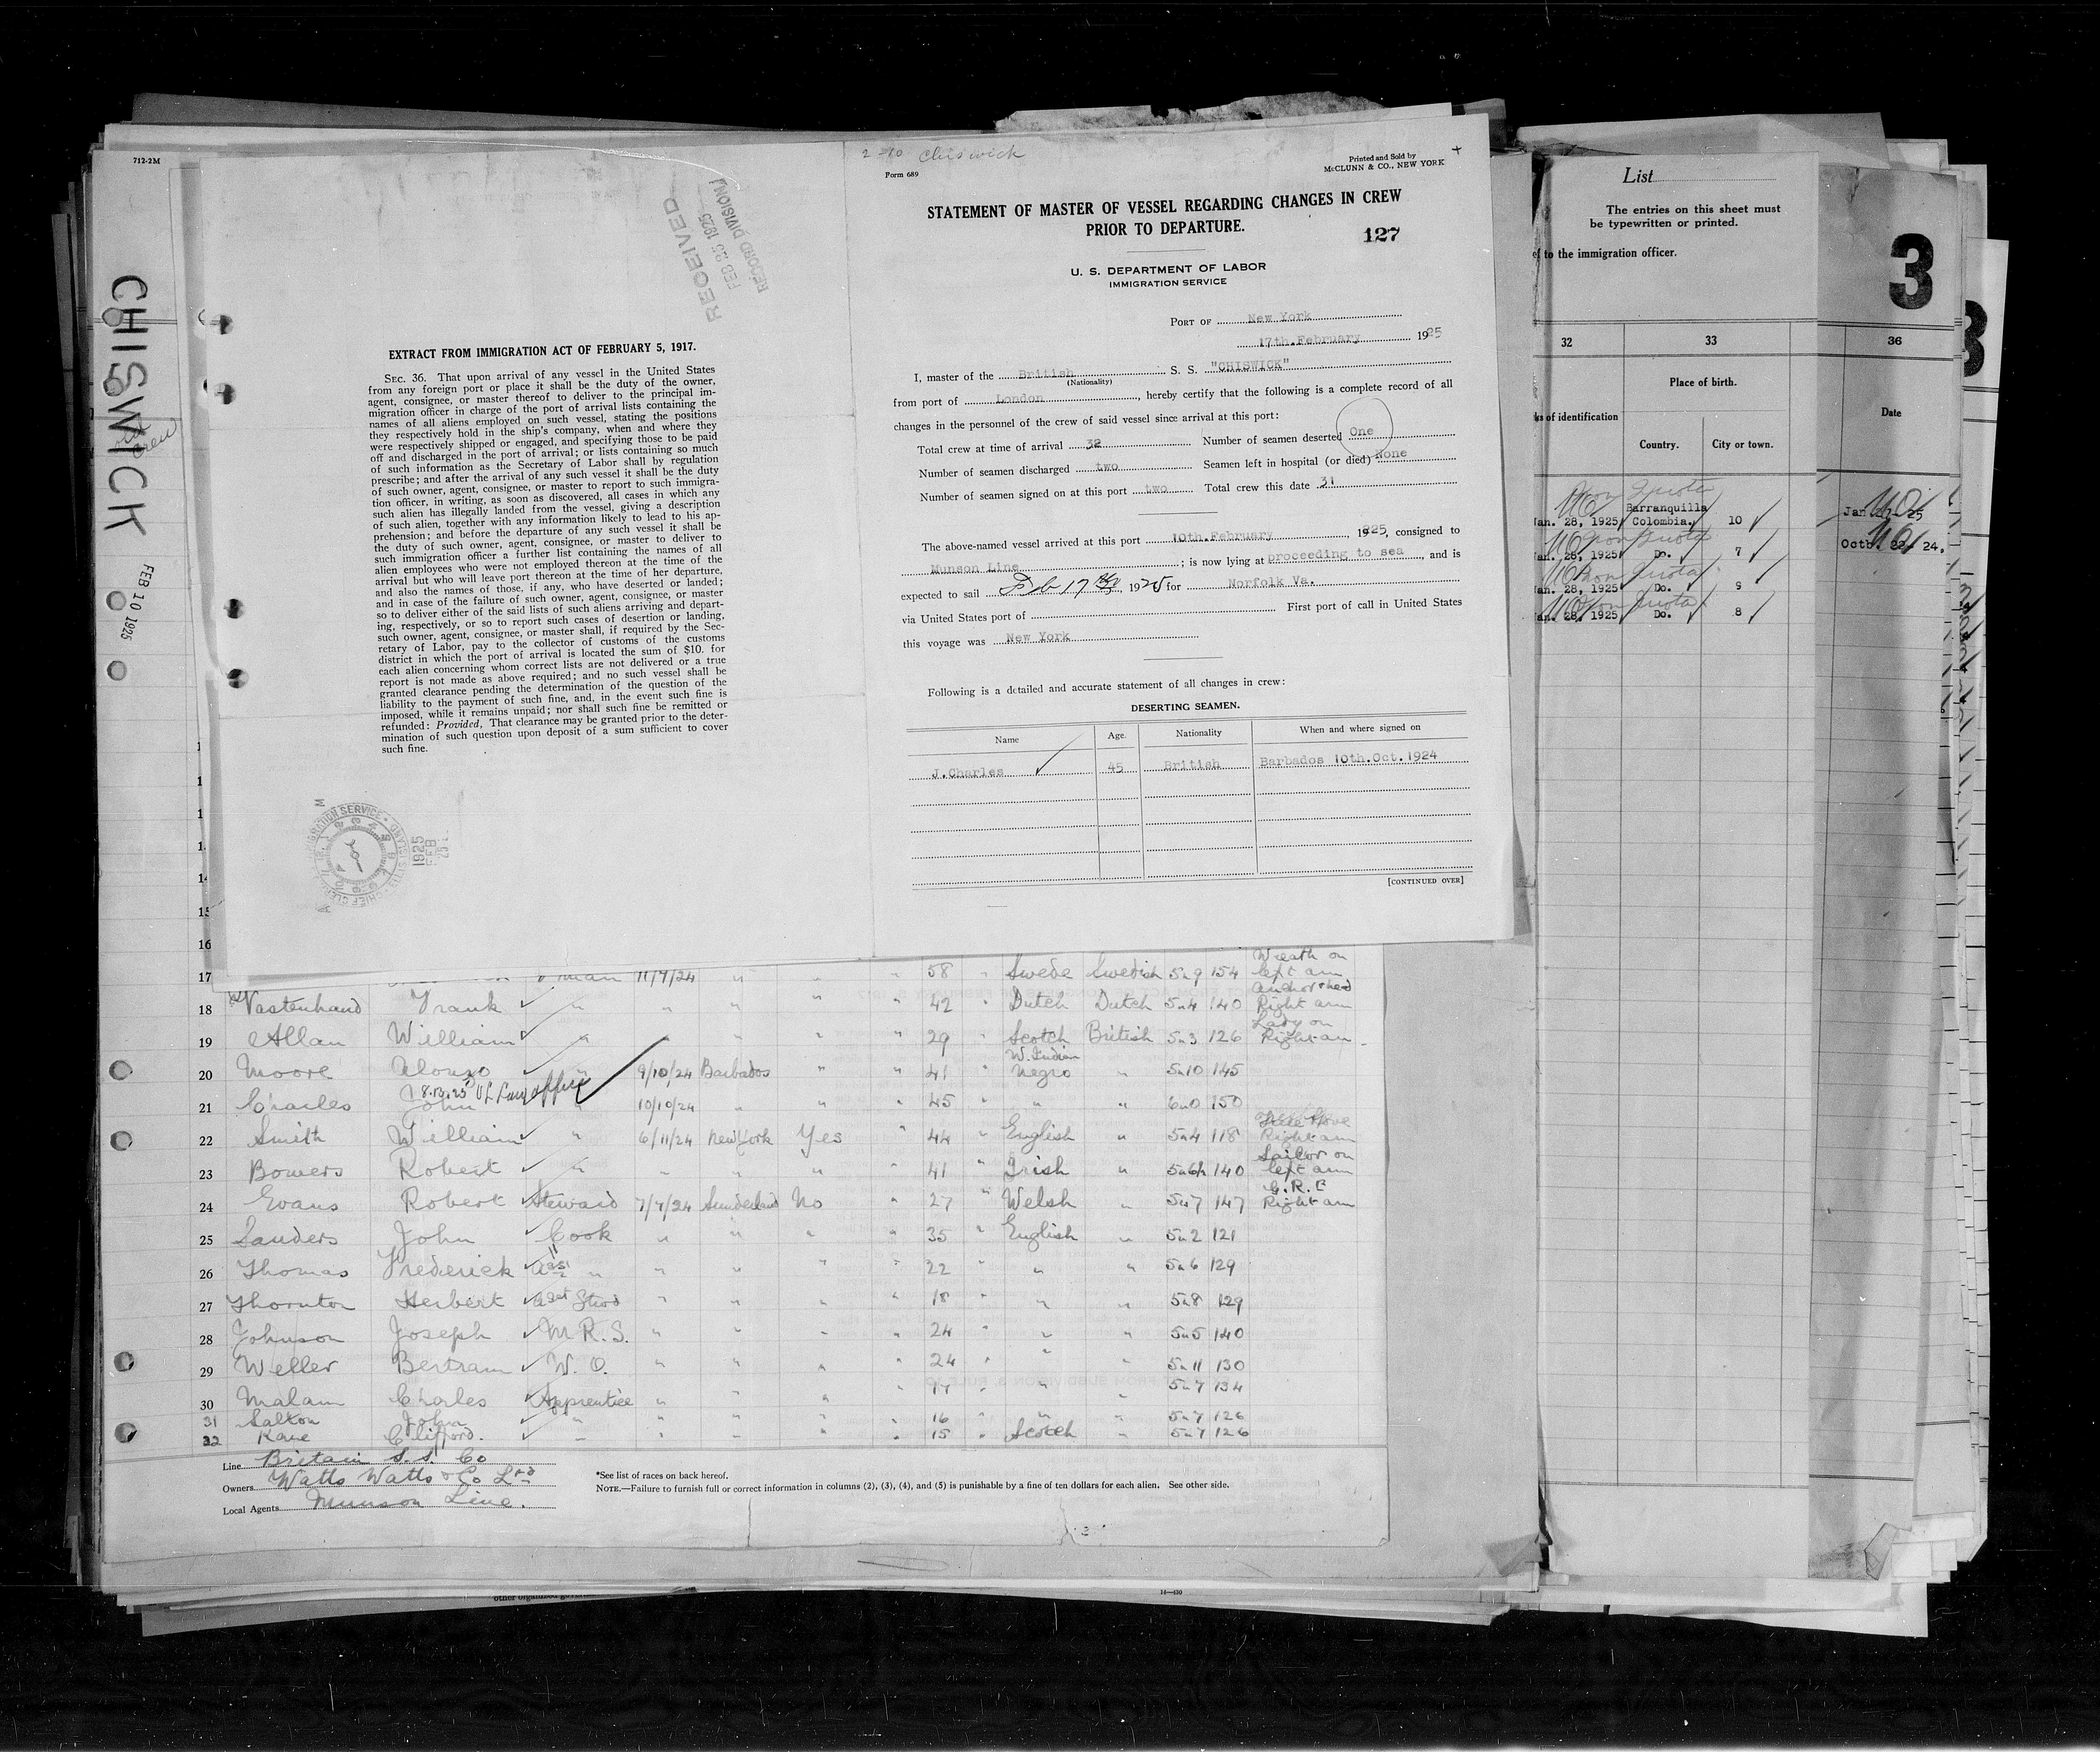 712-2M
CHISWICK
FEB 10 1925
RECEIVED
FEB 25 1925
RECORD DIVISION
EXTRACT FROM IMMIGRATION ACT OF FEBRUARY 5, 1917.
SEC. 36. That upon arrival of any vessel in the United States
from any foreign port or place it shall be the duty of the owner,
agent, consignee, or master thereof to deliver to the principal im-
migration officer in charge of the port of arrival lists containing the
names of all aliens employed on such vessel, stating the positions
they respectively hold in the ship's company, when and where they
were respectively shipped or engaged, and specifying those to be paid
off and discharged in the port of arrival; or lists containing so much
of such information as the Secretary of Labor shall by regulation
prescribe; and after the arrival of any such vessel it shall be the duty
of such owner, agent, consignee, or master to report to such immigra-
tion officer, in writing, as soon as discovered, all cases in which any
such alien has illegally landed from the vessel, giving a description
of such alien, together with any information likely to lead to his ap-
prehension; and before the departure of any such vessel it shall be
the duty of such owner, agent, consignee, or master to deliver to
such immigration officer a further list containing the names of all
alien employees who were not employed thereon at the time of the
arrival but who will leave port thereon at the time of her departure,
and also the names of those, if any, who have deserted or landed;
and in case of the failure of such owner, agent, consignee, or master
so to deliver either of the said lists of such aliens arriving and depart-
ing, respectively, or so to report such cases of desertion or landing,
such owner, agent, consignee, or master shall, if required by the Sec-
retary of Labor, pay to the collector of customs of the customs
district in which the port of arrival is located the sum of $10. for
each alien concerning whom correct lists are not delivered or a true
report is not made as above required; and no such vessel shall be
granted clearance pending the determination of the question of the
liability to the payment of such fine, and, in the event such fine is
imposed, while it remains unpaid; nor shall such fine be remitted or
refunded: Provided, That clearance may be granted prior to the deter-
mination of such question upon deposit of a sum sufficient to cover
such fine.
1925
FEB
2-10 Chiswick
Form 689
Printed and Sold by
McCLUNN & CO., NEW YORK
STATEMENT OF MASTER OF VESSEL REGARDING CHANGES IN CREW
PRIOR TO DEPARTURE.
127
U. S. DEPARTMENT OF LABOR
IMMIGRATION SERVICE
PORT OF New York
17th.February 1925
I, master of the British S. S. "CHISWICK"
(Nationality)
from port of London, hereby certify that the following is a complete record of all
changes in the personnel of the crew of said vessel since arrival at this port:
Total crew at time of arrival 32 Number of seamen deserted One
Number of seamen discharged two Seamen left in hospital (or died) None
Number of seamen signed on at this port two Total crew this date 31
The above-named vessel arrived at this port 10th.February, 1925, consigned to
Munson Line; is now lying at proceeding to sea, and is
expected to sail Feb 17th 1925 for Norfolk Va.
via United States port of First port of call in United States
this voyage was New York
Following is a detailed and accurate statement of all changes in crew:
DESERTING SEAMEN.
Name Age. Nationality When and where signed on
J.Charles 45 British Barbados 10th.Oct.1924
[CONTINUED OVER]
List
The entries on this sheet must
be typewritten or printed.
to the immigration officer.
3
32 33 36
Place of birth.
ks of identification
Country. City or town.
Date
Non Quota
Barranquilla
an. 28, 1925 Colombia. 10
an. 28, 1925 Do. 7
an. 28, 1925 Do. 9
an. 28, 1925 Do. 8
14
15
16
17 11/7/24 " " " 58 " Swede Swedish 5n9 154 Wreath on left arm
18 Vastenhaud Frank " " " " " 42 " Dutch Dutch 5n4 140 Anchor & head Right arm
19 Allan William " " " " " 29 " Scotch British 5n3 126 Lady on Right arm
20 Moore Alonzo " 9/10/24 Barbados " " 41 " W. Indian Negro " 5n10 145
21 Charles John " 10/10/24 " " " 45 " " " 6n0 150
22 Smith William " 6/11/24 New York Yes " 44 " English " 5n4 118 Right arm
23 Bowers Robert " " " " " 41 " Irish " 5n6½ 140 Sailor on left arm
24 Evans Robert Steward 7/7/24 Sunderland No " 27 " Welsh " 5n7 147 G.R.E Right arm
25 Sanders John Cook " " " " 35 " English " 5n2 121
26 Thomas Frederick Asst " " " " " 22 " " " 5n6 129
27 Thornton Herbert Asst Stwd " " " " 18 " " " 5n8 129
28 Johnson Joseph M.R.S. " " " " 24 " " " 5n5 140
29 Weller Bertram W. O. " " " " 24 " " " 5n11 130
30 Malam Charles Apprentice " " " " 17 " " " 5n7 134
31 Salton John " " " " " 16 " " " 5n7 126
32 Kane Clifford. " " " " " 15 " Scotch " 5n7 126
Line Britain S.S. Co
Owners Watts Watts & Co Ltd
Local Agents Munson Line.
*See list of races on back hereof.
NOTE.—Failure to furnish full or correct information in columns (2), (3), (4), and (5) is punishable by a fine of ten dollars for each alien. See other side.
14—430